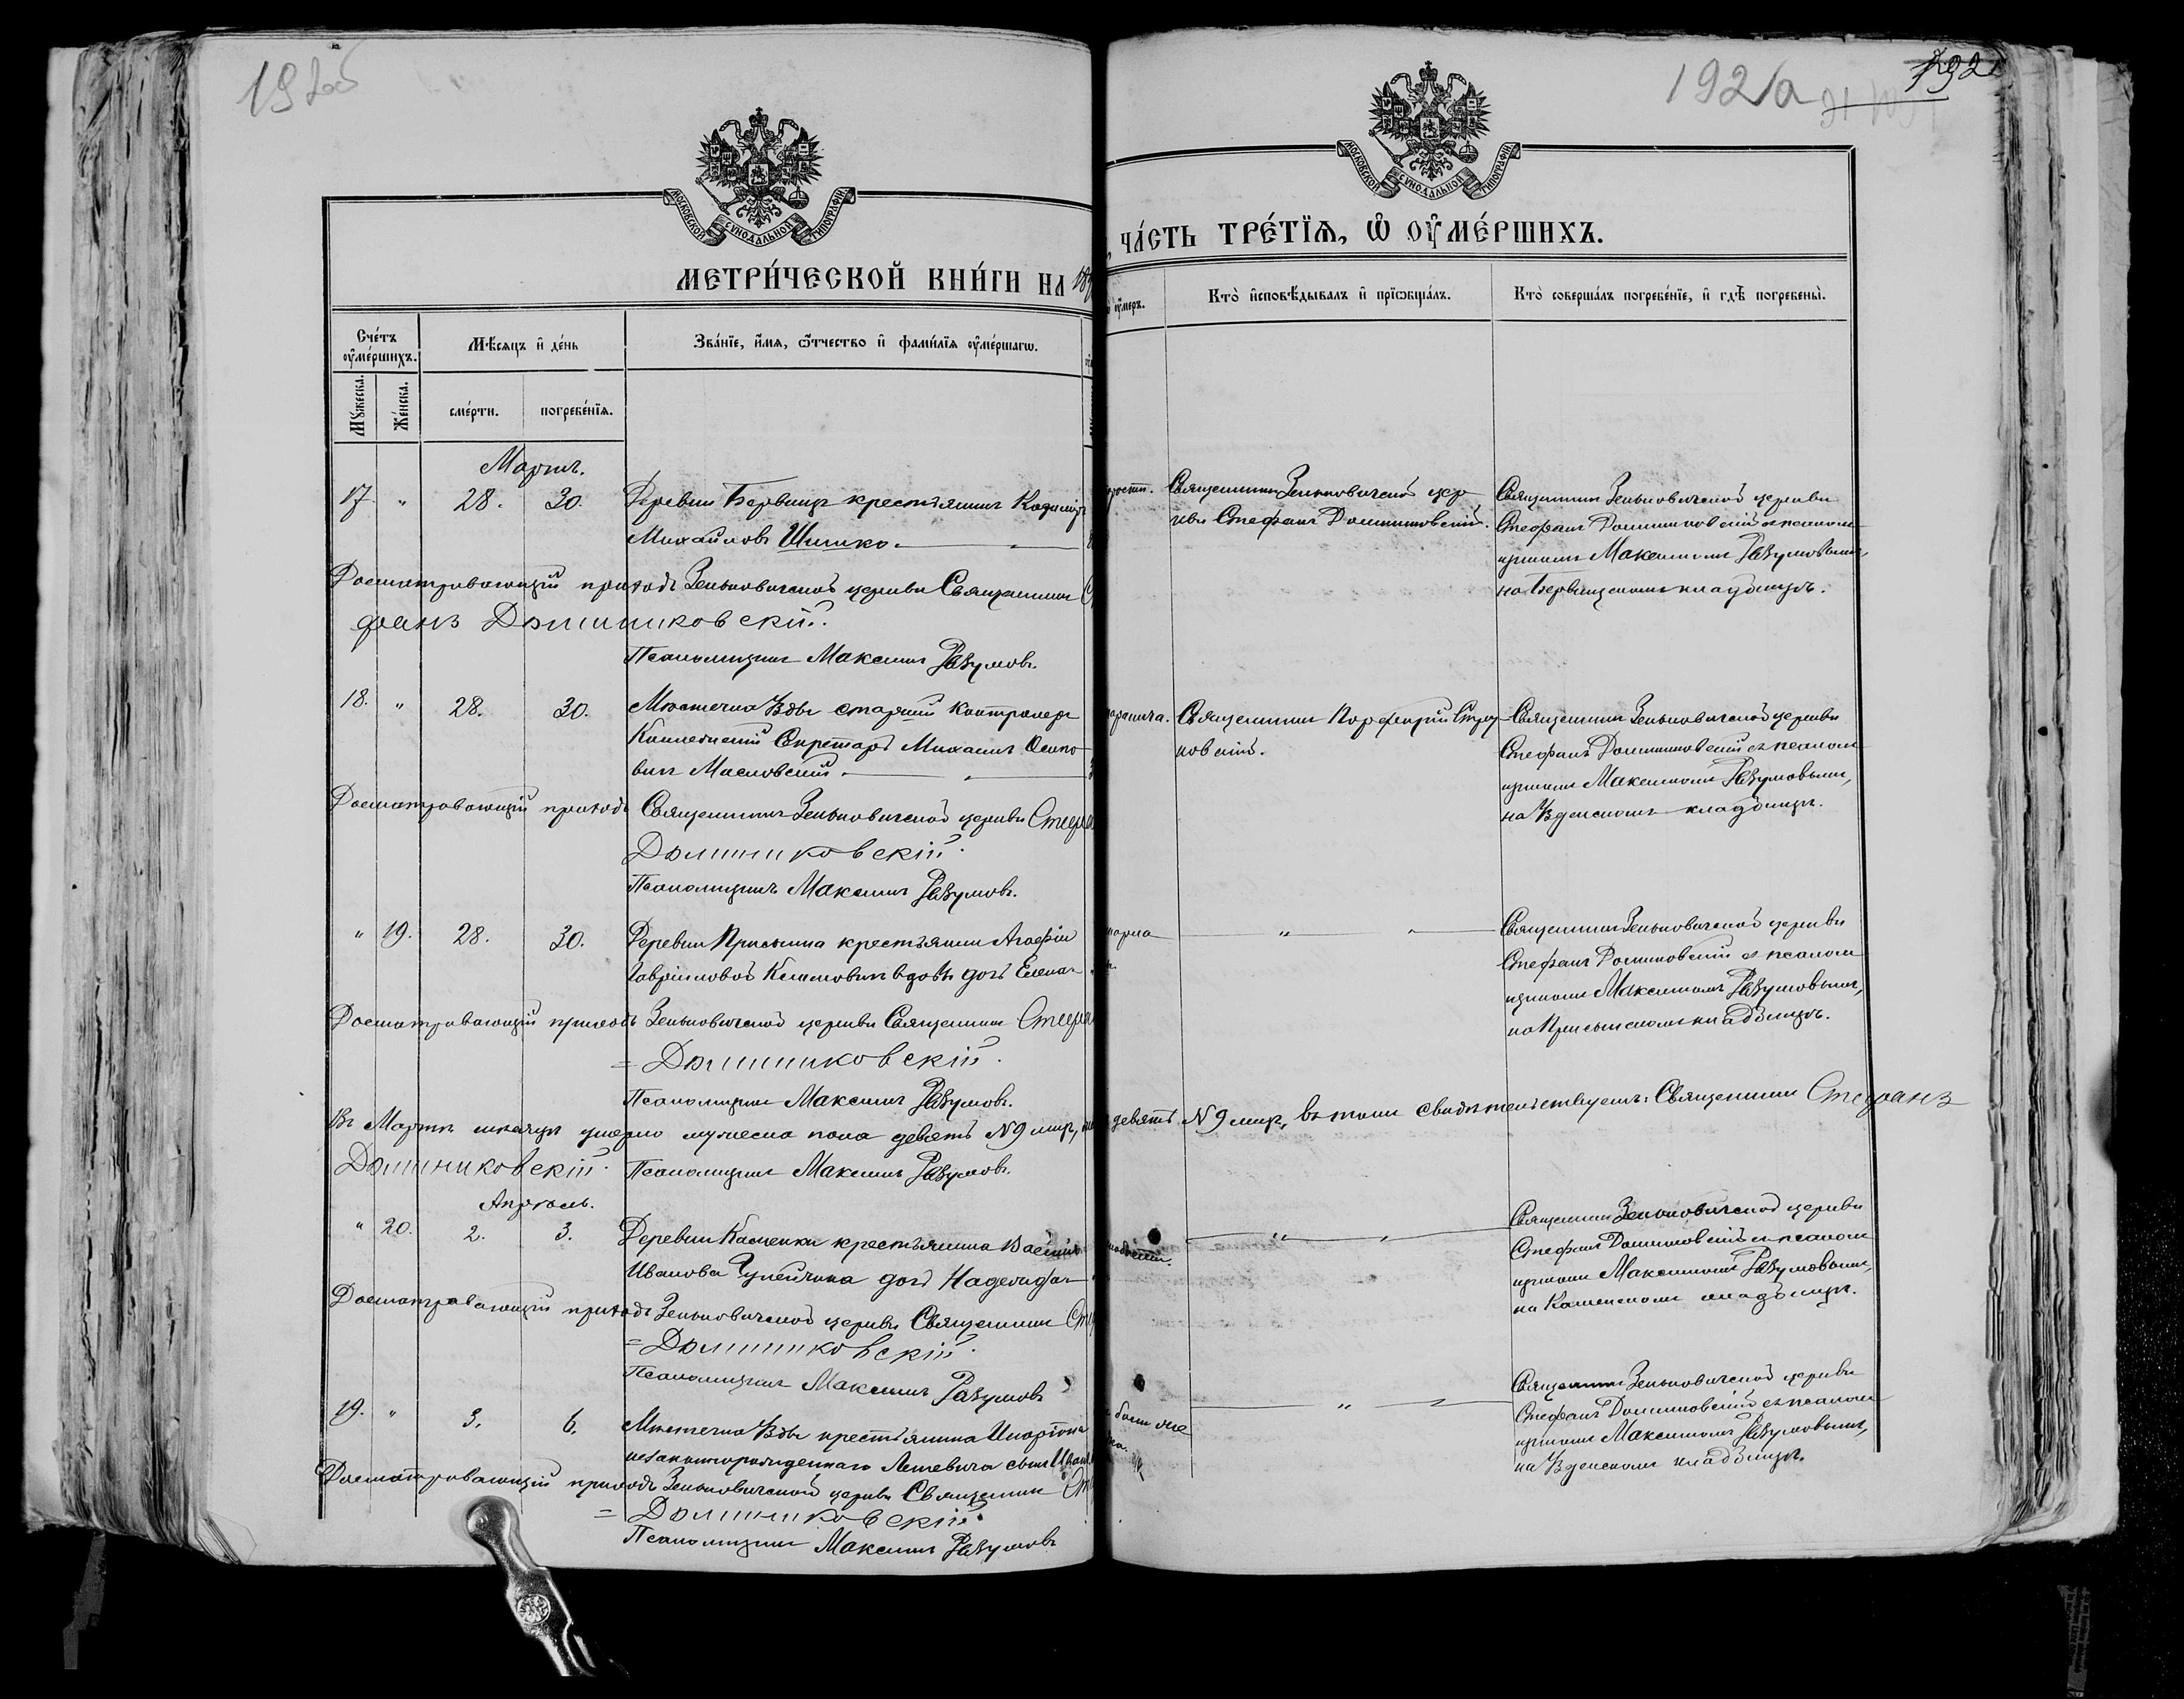 192об
МОСКОВСКОЙ СѴНОДАЛЬНОЙ ТИПОГРАФІИ
МЕТРИ́ЧЕСКОЙ КНИ́ГИ НА 189
Сче́тъ ѹ҆ме́ршихъ.
Мꙋ́жеска.
Же́нска.
Мѣ́сяцъ и҆ де́нь
сме́рти.
погребе́нїя.
Зва́нїе, и҆́мя, ѻ҆́тчество и҆ фами́лїя ѹ҆ме́ршагѡ.
Мартъ.
17. " 28. 30. Деревни Бервищъ крестьянинъ Казиміръ
Михайловъ Шишко.
Досматривающій приходъ Зеньковичской церкви Священникъ
фанъ Долинниковскій.
Псаломщикъ Максимъ Разумовъ.
18. " 28. 30. Мѣстечка Узды старшій контролеръ
Коллежскій Секретарь Михаилъ Осипо-
вичъ Масловскій.
Досматривающій приходъ Священникъ Зеньковичской церкви Стефа
Долинниковскій.
Псаломщикъ Максимъ Разумовъ.
" 19. 28. 30. Деревни Присынка крестьянки Агафіи
Гавріиловой вдовы дочь Елена
Досматривающій приходъ Зеньковичской церкви Священникъ Стефа
= Долинниковскій.
Псаломщикъ Максимъ Разумовъ.
Въ Мартѣ мѣсяцѣ умерло мужеска пола девять №9 мир,
Долинниковскій. Псаломщикъ Максимъ Разумовъ.
Апрѣль.
" 20. 2. 3. Деревни Каменки крестьянина Василія
Иванова дочь Надежда
Досматривающій приходъ Зеньковичской церкви Священникъ
= Долинниковскій.
Псаломщикъ Максимъ Разумовъ
19. " 3. 6. Мѣстечка Узды крестьянина
незаконнорожденнаго сынъ Иванъ
Досматривающій приходъ Зеньковичской церкви Священникъ
= Долинниковскій.
Псаломщикъ Максимъ Разумовъ
192а
192
МОСКОВСКОЙ СѴНОДАЛЬНОЙ ТИПОГРАФІИ
, ЧА́СТЬ ТРЕ́ТЇѦ, Ѡ҆ ОУ҆МЕ́РШИХЪ.
ѹ҆́меръ.
Кто̀ и҆сповѣ́дывалъ и҆ прїѡбща́лъ.
Кто̀ соверша́лъ погребе́нїе, и҆ гдѣ̀ погребены̀.
Священникъ Зеньковичской цер
кви Стефанъ Долинниковскій.
Священникъ Зеньковичской церкви
Стефанъ Долинниковскій съ псалом
щикомъ Максимомъ Разумовымъ,
на Бервищскомъ кладбищѣ.
Священникъ Порфирій
новскій.
Священникъ Зеньковичской церкви
Стефанъ Долинниковскій съ псалом
щикомъ Максимомъ Разумовымъ,
на Узденскомъ кладбищѣ.
Священникъ Зеньковичской церкви
Стефанъ Долинниковскій съ псалом
щикомъ Максимомъ Разумовымъ,
на Присынскомъ кладбищѣ.
девять №9 мир, въ томъ свидѣтельствуемъ: Священникъ Стефанъ
Священникъ Зеньковичской церкви
Стефанъ Долинниковскій съ псалом
щикомъ Максимомъ Разумовымъ,
на Каменскомъ кладбищѣ.
Священникъ Зеньковичской церкви
Стефанъ Долинниковскій съ псалом
щикомъ Максимомъ Разумовымъ,
на Узденскомъ кладбищѣ.